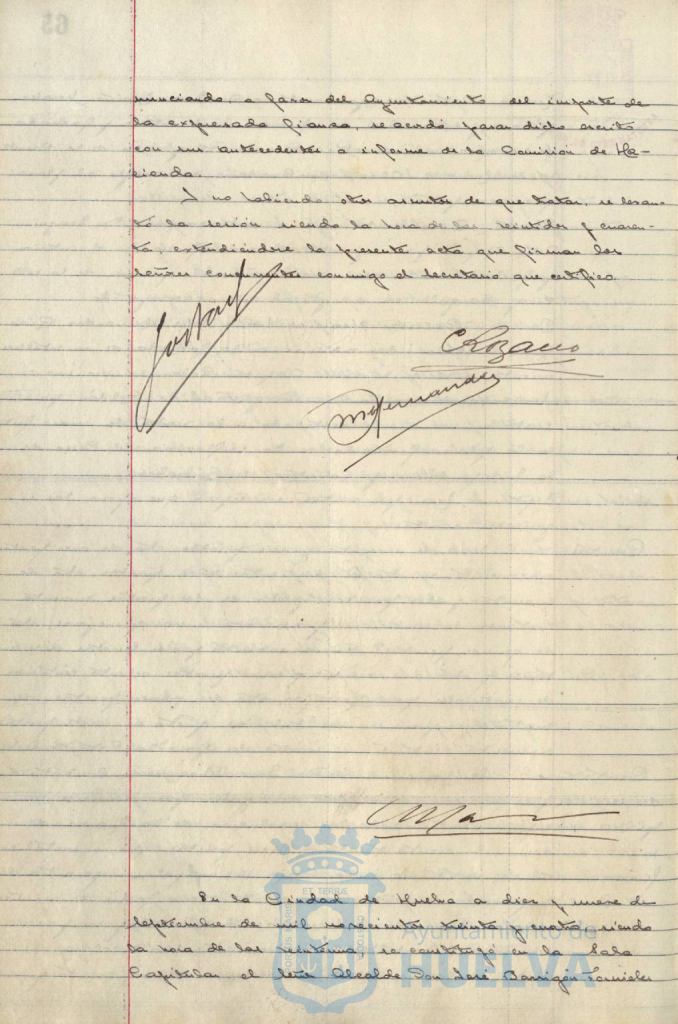 nunciando, a favor del Ayuntamiento del importe de
la expresada fianza, se acordó pasar dicho escrito
con sus antecedentes a informe de la Comisión de Ha-
cienda.
Y no habiendo otros asuntos de que tratar, se levan-
tó la sesión siendo la hora de las veintidos y cuaren-
ta, extendiéndose la presente acta que firman los
señores concurrentes conmigo el Secretario que certifico.
C Rozano
M Hernandez
En la Ciudad de Huelva a diez y nueve de
Septiembre de mil novecientos treinta y cuatro, siendo
la hora de las veintiuna, se constituyó en la Sala
Capitular el Señor Alcalde Don José Barrigón Fornieles
ET TERRÆ
Ayuntamiento de
HUELVA